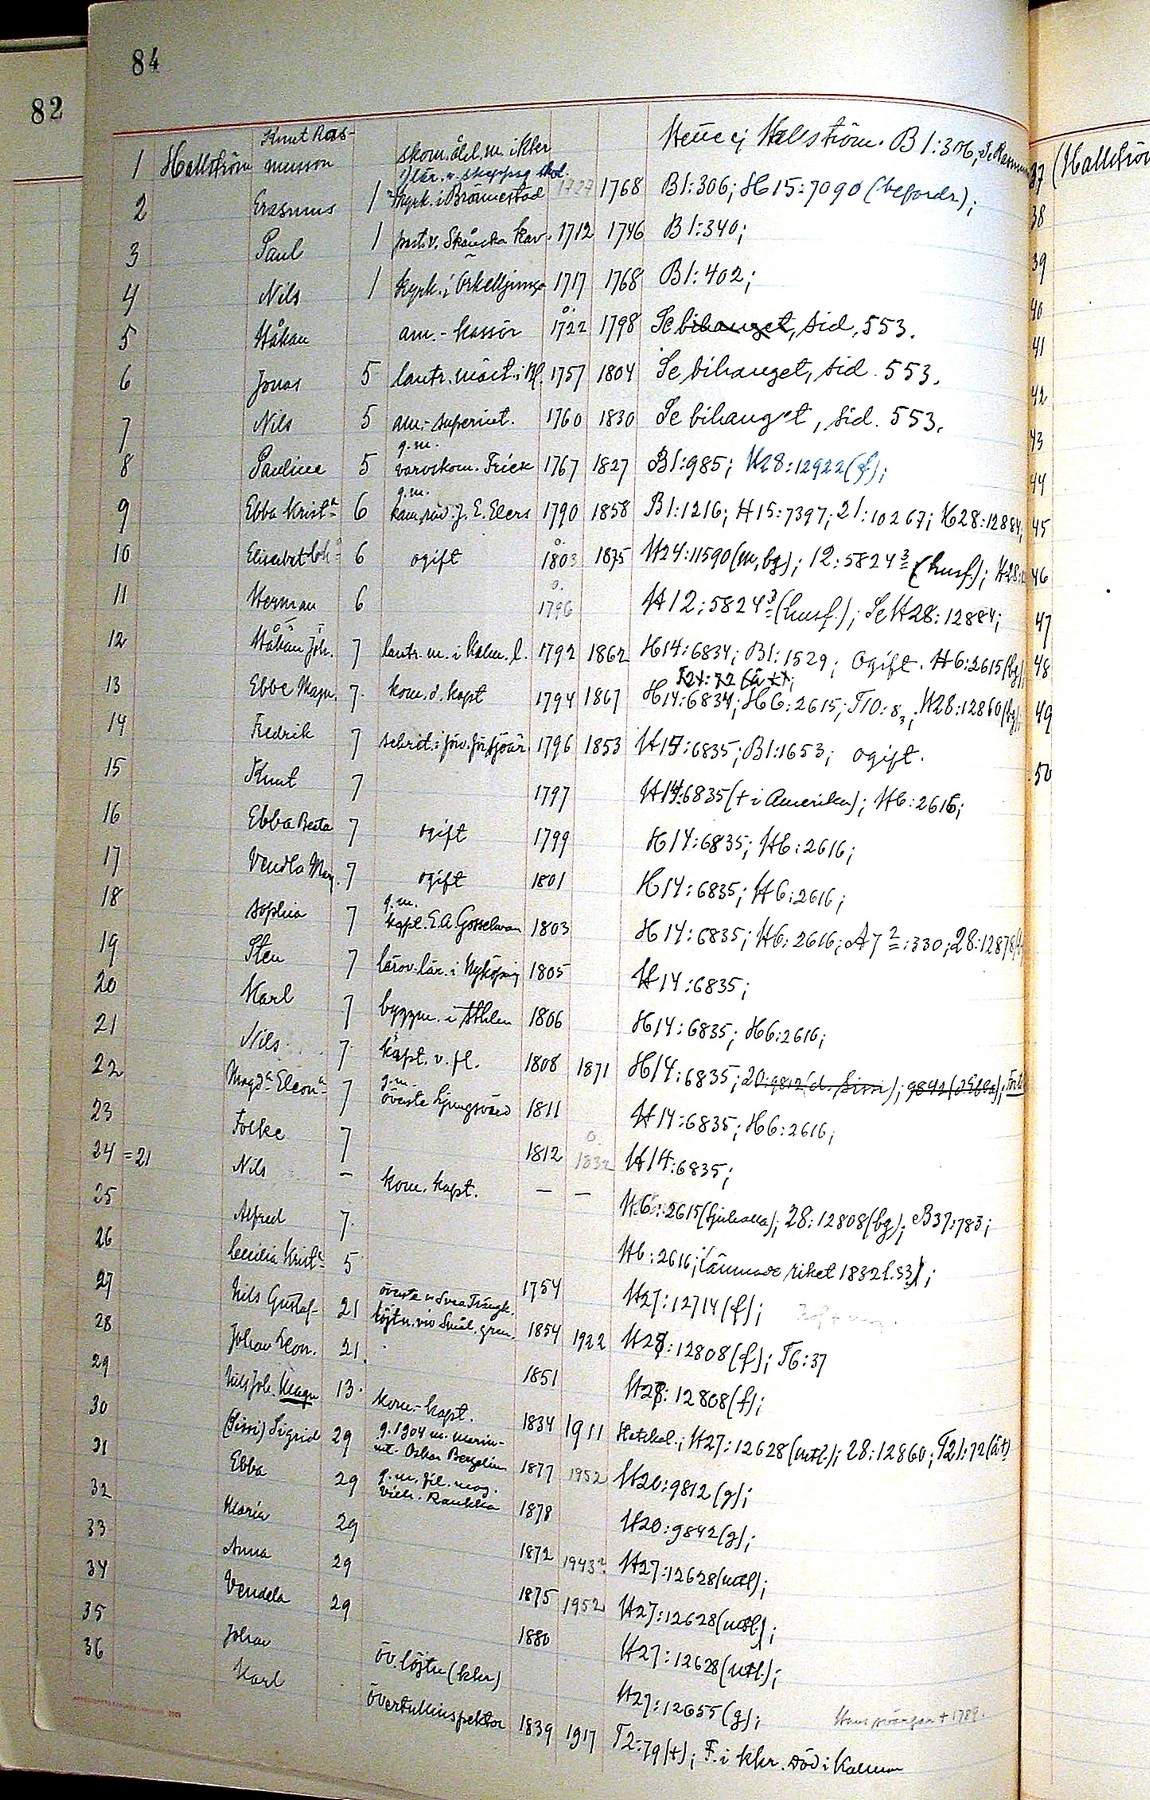 82
84
1 Hallström Knut Ras-
musson skom. åld. m. i khr Heue ej Hellström. B1:306;
2 Erasmus 1 kyrk. i Brönnestad 1727 1768 B1:306; H15:7090 (befordr);
3 Paul 1 past. v. Skånska kav. 1712 1746 B1:340;
4 Nils 1 kyrk. i Örkelljunga 1717 1768 B1:402;
5 Håkan am.-kassör 1722 1798 Se bihanget, sid. 553.
6 Jonas 5 lantr. mät. i Bl. 1757 1804 Se bihanget, sid. 553.
7 Nils 5 am.-superint. 1760 1830 Se bihanget, sid. 553.
8 Paulina 5 g.m. varvskom. Frick 1767 1827 B1:985; H28:12922 (f);
9 Ebba Krist:a 6 g.m. kam.råd. J. E. Elers 1790 1858 B1:1216; H15:7397; 21:10267; H28:12884;
10 Elisabet 6 ogift 1803 1875 H24:11590 (m, bg); 12:5824 3 (husf.);
11 Herman 6 1796 H12:5824 3 (husf.); Se H28:12884;
12 Håkan Joh. 7 lantr. m. i Kalm. l. 1792 1862 H14:6834; B1:1529; Ogift. H6:2615 (bg);
T21:72 (å t);
13 Ebbe Magn. 7 kom. o. kapt 1794 1867 H14:6834; H6:2615; T10:8; H28:12860 (bg);
14 Fredrik 7 1796 1853 H14:6835; B1:1653; ogift.
15 Knut 7 1797 H14:6835 († i Amerika); H6:2616;
16 Ebba Beata 7 ogift 1799 H14:6835; H6:2616;
17 Vendla Mar. 7 ogift 1801 H14:6835; H6:2616;
18 Sophia 7 g.m. kapt. E. A. Gosselman 1803 H14:6835; H6:2616; A7 2:330; 28:12878
19 Sten 7 lärov.lär. i Nyköping 1805 H14:6835;
20 Karl 7 byggm. i Sthlm 1806 H14:6835; H6:2616;
21 Nils 7 kapt. v. fl. 1808 1871 H14:6835; 20:9812 (d. Sissi); 9842 (d. Ebba);
22 Magd:a Eleon:a 7 g.m. överste Ljungsvärd 1811 H14:6835; H6:2616;
23 Folke 7 1812 1832 H14:6835;
24 = 21 Nils – kom. kapt. – – H6:2615 28:12808 (bg); B37:783;
25 Alfred 7 H6:2616; (lämnade riket 1832 l. 33);
26 Cecilia Krist:a 5 1754 H27:12714 (f);
27 Nils Gustaf 21 överste v. Svea Träng. löjtn. vid Smål. gren. 1854 1922 H28:12808 (f); T6:37
28 Johan Leon. 21 1851 H28:12808 (f);
29 Nils Joh. Magn 13 kom.-kapt. 1834 1911 H27:12628 (utl.); 28:12860; T21:72 (åt)
30 (Sissi) Sigrid 29 g. 1904 m. marin-
int. Oskar Bergelin 1877 1952 H20:9812 (g);
31 Ebba 29 g.m. fil. mag. 1878 H20:9842 (g);
32 Maria 29 1872 1943? H27:12628 (utl);
33 Anna 29 1875 1952 H27:12628 (utl);
34 Vendela 29 1880 H27:12628 (utl);
35 Johan öv. löjtn (khr) H27:12655 (g);
36 Karl övertullinspektor 1839 1917 T2:79 (†); F. i khr. Död i Kalmar
37 (Hallströ
38
39
40
41
42
43
44
45
46
47
48
49
50